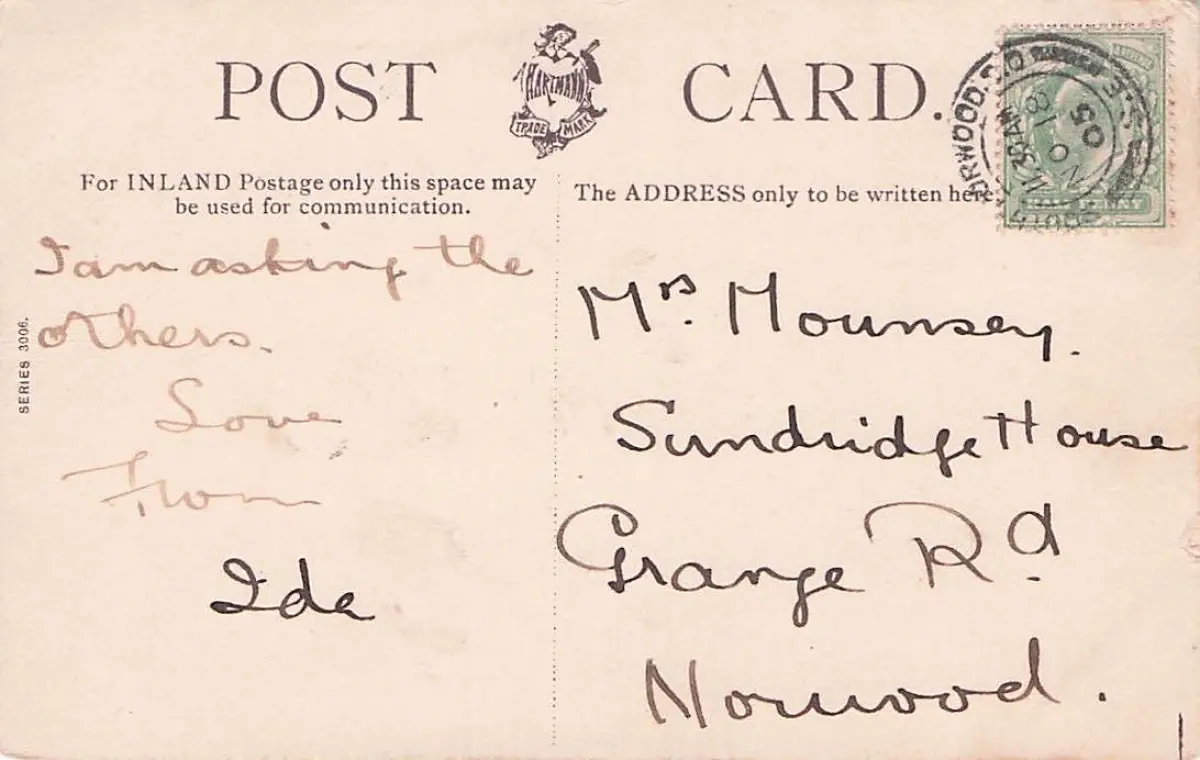 POST CARD.
HARTMANN
TRADE MARK
For INLAND Postage only this space may
be used for communication.
The ADDRESS only to be written here.
SERIES 3006.
I am asking the
others.
Love
From
Ida
Mrs. Mounsey.
Sundridge House
Grange Rd.
Norwood.
11.30AM
NO 18
05
S.E.